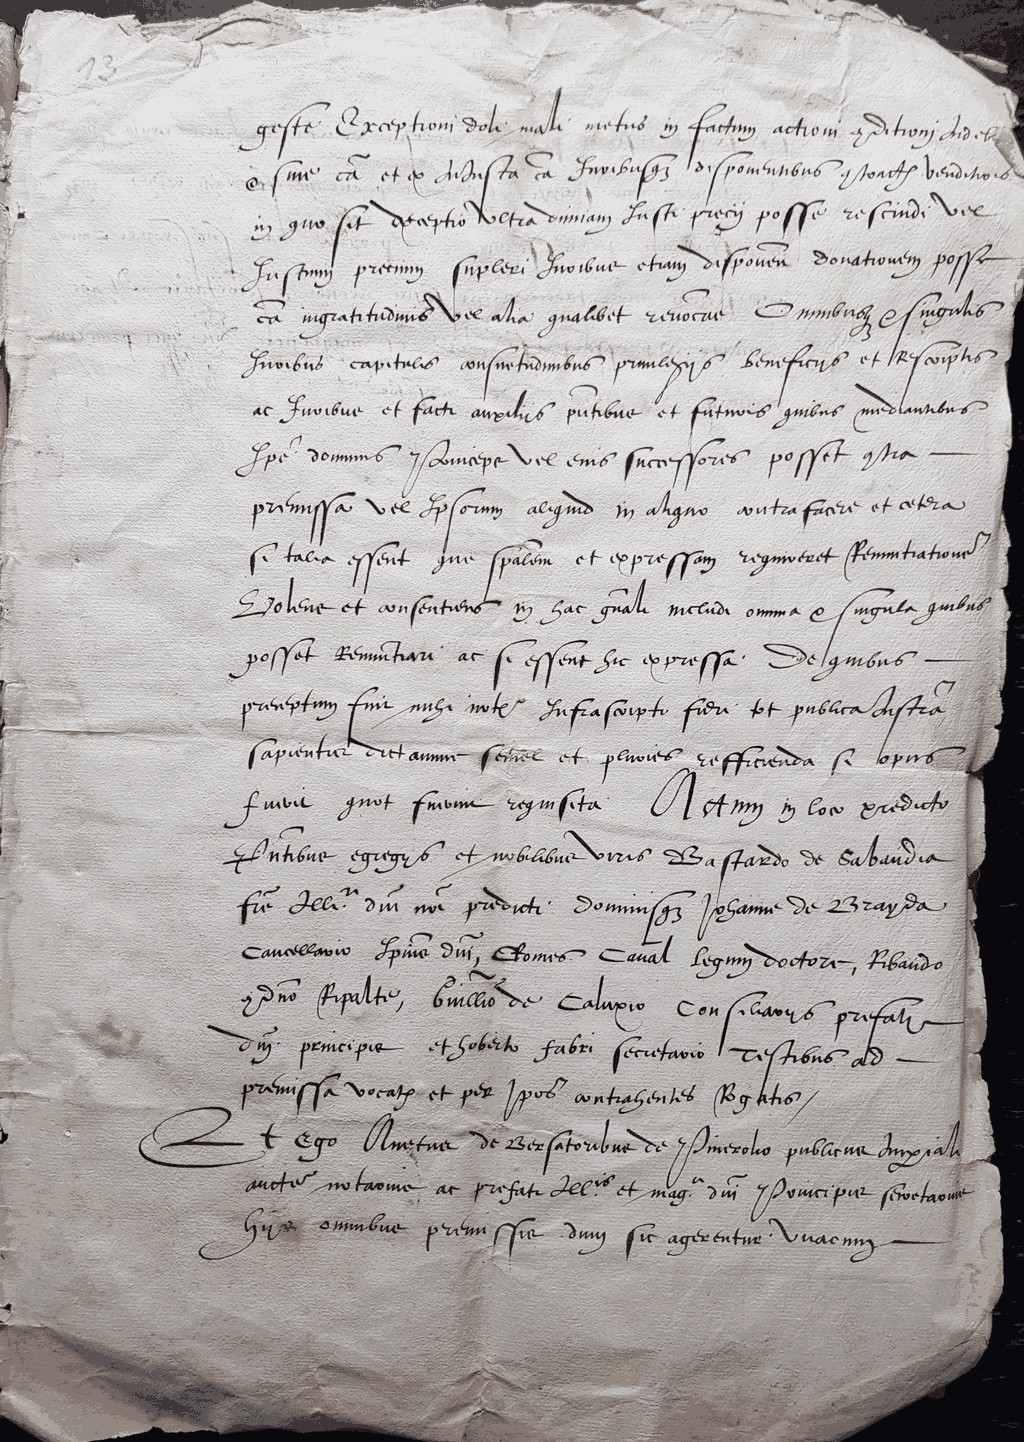 13
geste Exceptioni doli mali metus in factum actioni 9ditioni Indeb
sine cã et ex Iniusta cã Iuribusq3 disponentibus venditiones
in quo sit deceptio ultra dimiam Iusti precij posse rescindi vel
Iustum precium supleri Iuribus etiam disponeñ donationem posse
cã ingratitudinis vel alia qualibet revocare Omnibusq3 & singulis
Iuribus capitulis consuetudinibus privilegijs beneficijs et Rescriptis
ac Iuribus et facti auxilijs pñtibus et futuris quibus mediantibus
Ipe dominus princeps vel eius successores posset 9tra
premissa vel Ipsorum aliquid in aliquo contrafacere et cetera
si talia essent que spãlem et expressam requireret Renuntiatione
Volens et consentiens in hac gñali includi omnia & singula quibus
posset Renuntiari ac si essent hic expressa De quibus
preceptum fuit mihi note Infrascripto fieri pt publica Instra
sapientis dictamine semel et pluries refficienda si opus
fuerit quot fuerint requisita Actum in loco predicto
pñtibus egregijs et nobilibus viris Bastardo de Sabaudia
frẽ Ille dñi nrĩ predicti dominisq3 Johanne de Brayda
Cancellario Ipius dñi, Romeo Canal legum doctore, Ribaudo
9dño Ripalte, Guillio de Caluxio Consiliarijs prefati
dñi principis et hoberto fabri secretario Testibus ad
premissa vocatis et per Ipos contrahentes Rogatis /
Et Ego Anetus de Bersatoribus de Pinerolio publicus Imperiali
aucte notarius ac prefati Illis et mag dñi Principis secretarius
hijs omnibus premissis dum sic agerentur unacum